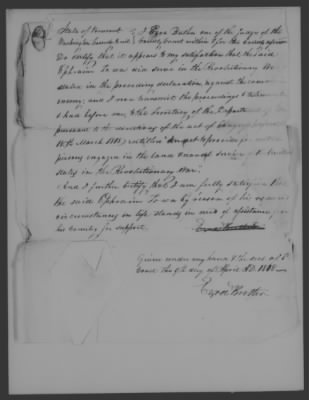 State of Vermont
I Ezra Butler one of the Judges of the
County Court within & for the County aforesaid
Do certify that it appears to my satisfaction that the said
Ephraim did serve in the Revolutionary War
stated in the preceding declaration against the common
enemy, and I now transmit the proceedings & testimony
had before me, to the Secretary of the Department
pursuant to the directions of the act of
18th March 1818, entitled "An act to provide for certain
persons engaged in the land & naval service of the United
States in the Revolutionary War.
And I further certify, that I am fully satisfied that
the said Ephraim by reason of his
circumstances in life stands in need of assistance from
his Country for support.
Given under my hand & the seal of sd
Court this day of April AD. 1818
Ezra Butler